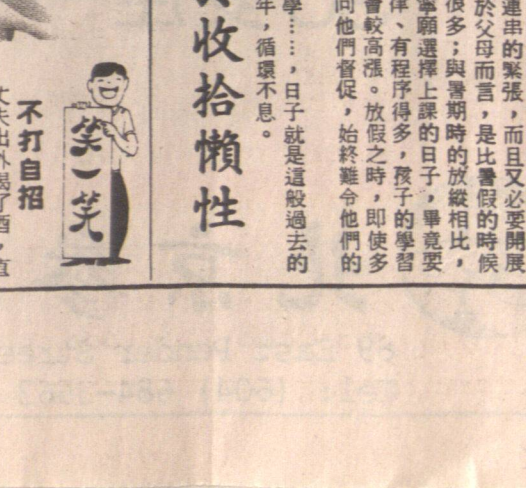 連串的緊張，而且又必要開展
於父母而言，是比暑假的時候
很多；與暑期時的放縱相比，
寧願選擇上課的日子，畢竟要
律、有程序得多，孩子的學習
會較高漲。放假之時，即使多
向他們督促，始終難令他們的
學……，日子就是這般過去的
年，循環不息。
收拾懶性
笑一笑
不打自招
丈夫出外喝了酒，直